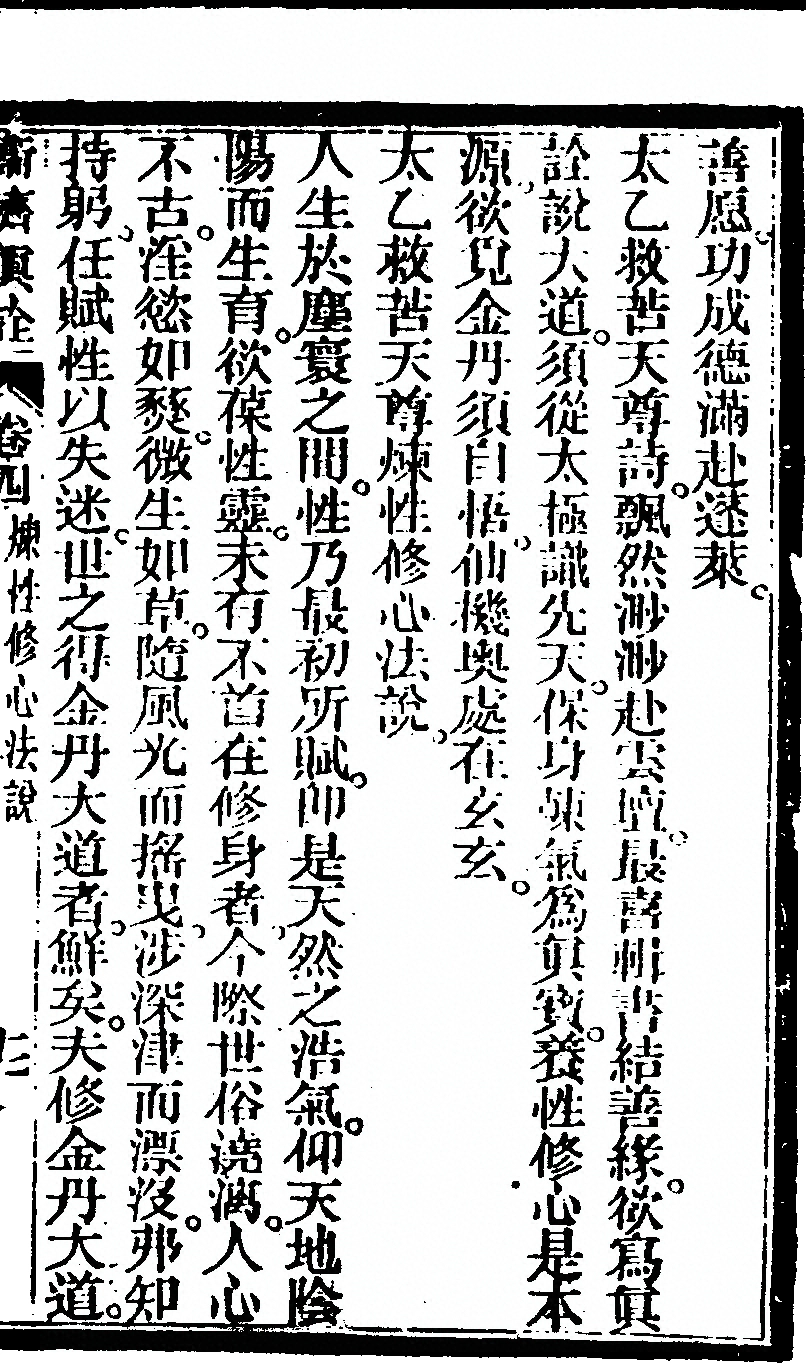 善愿。功成德滿赴蓬萊。
太乙救苦天尊詩。飄然渺渺赴雲壇。最喜輯書結善緣。欲寫眞
詮說大道。須從太極識先天。保身煉氣爲眞寶。養性修心是本
源。欲覓金丹須自悟。仙機奥處在玄玄。
太乙救苦天尊煉性修心法說。
人生於塵寰之間。性乃最初所賦。卽是天然之浩氣。仰天地陰
陽而生育。欲葆性靈。未有不首在修身者。今際世俗澆漓。人心
不古。淫慾如燹。微生如草。隨風光而搖曳。涉深津而漂沒。弗知
持躬。任賦性以失迷。世之得金丹大道者。鮮矣。夫修金丹大道。
卷四 煉性修心法說